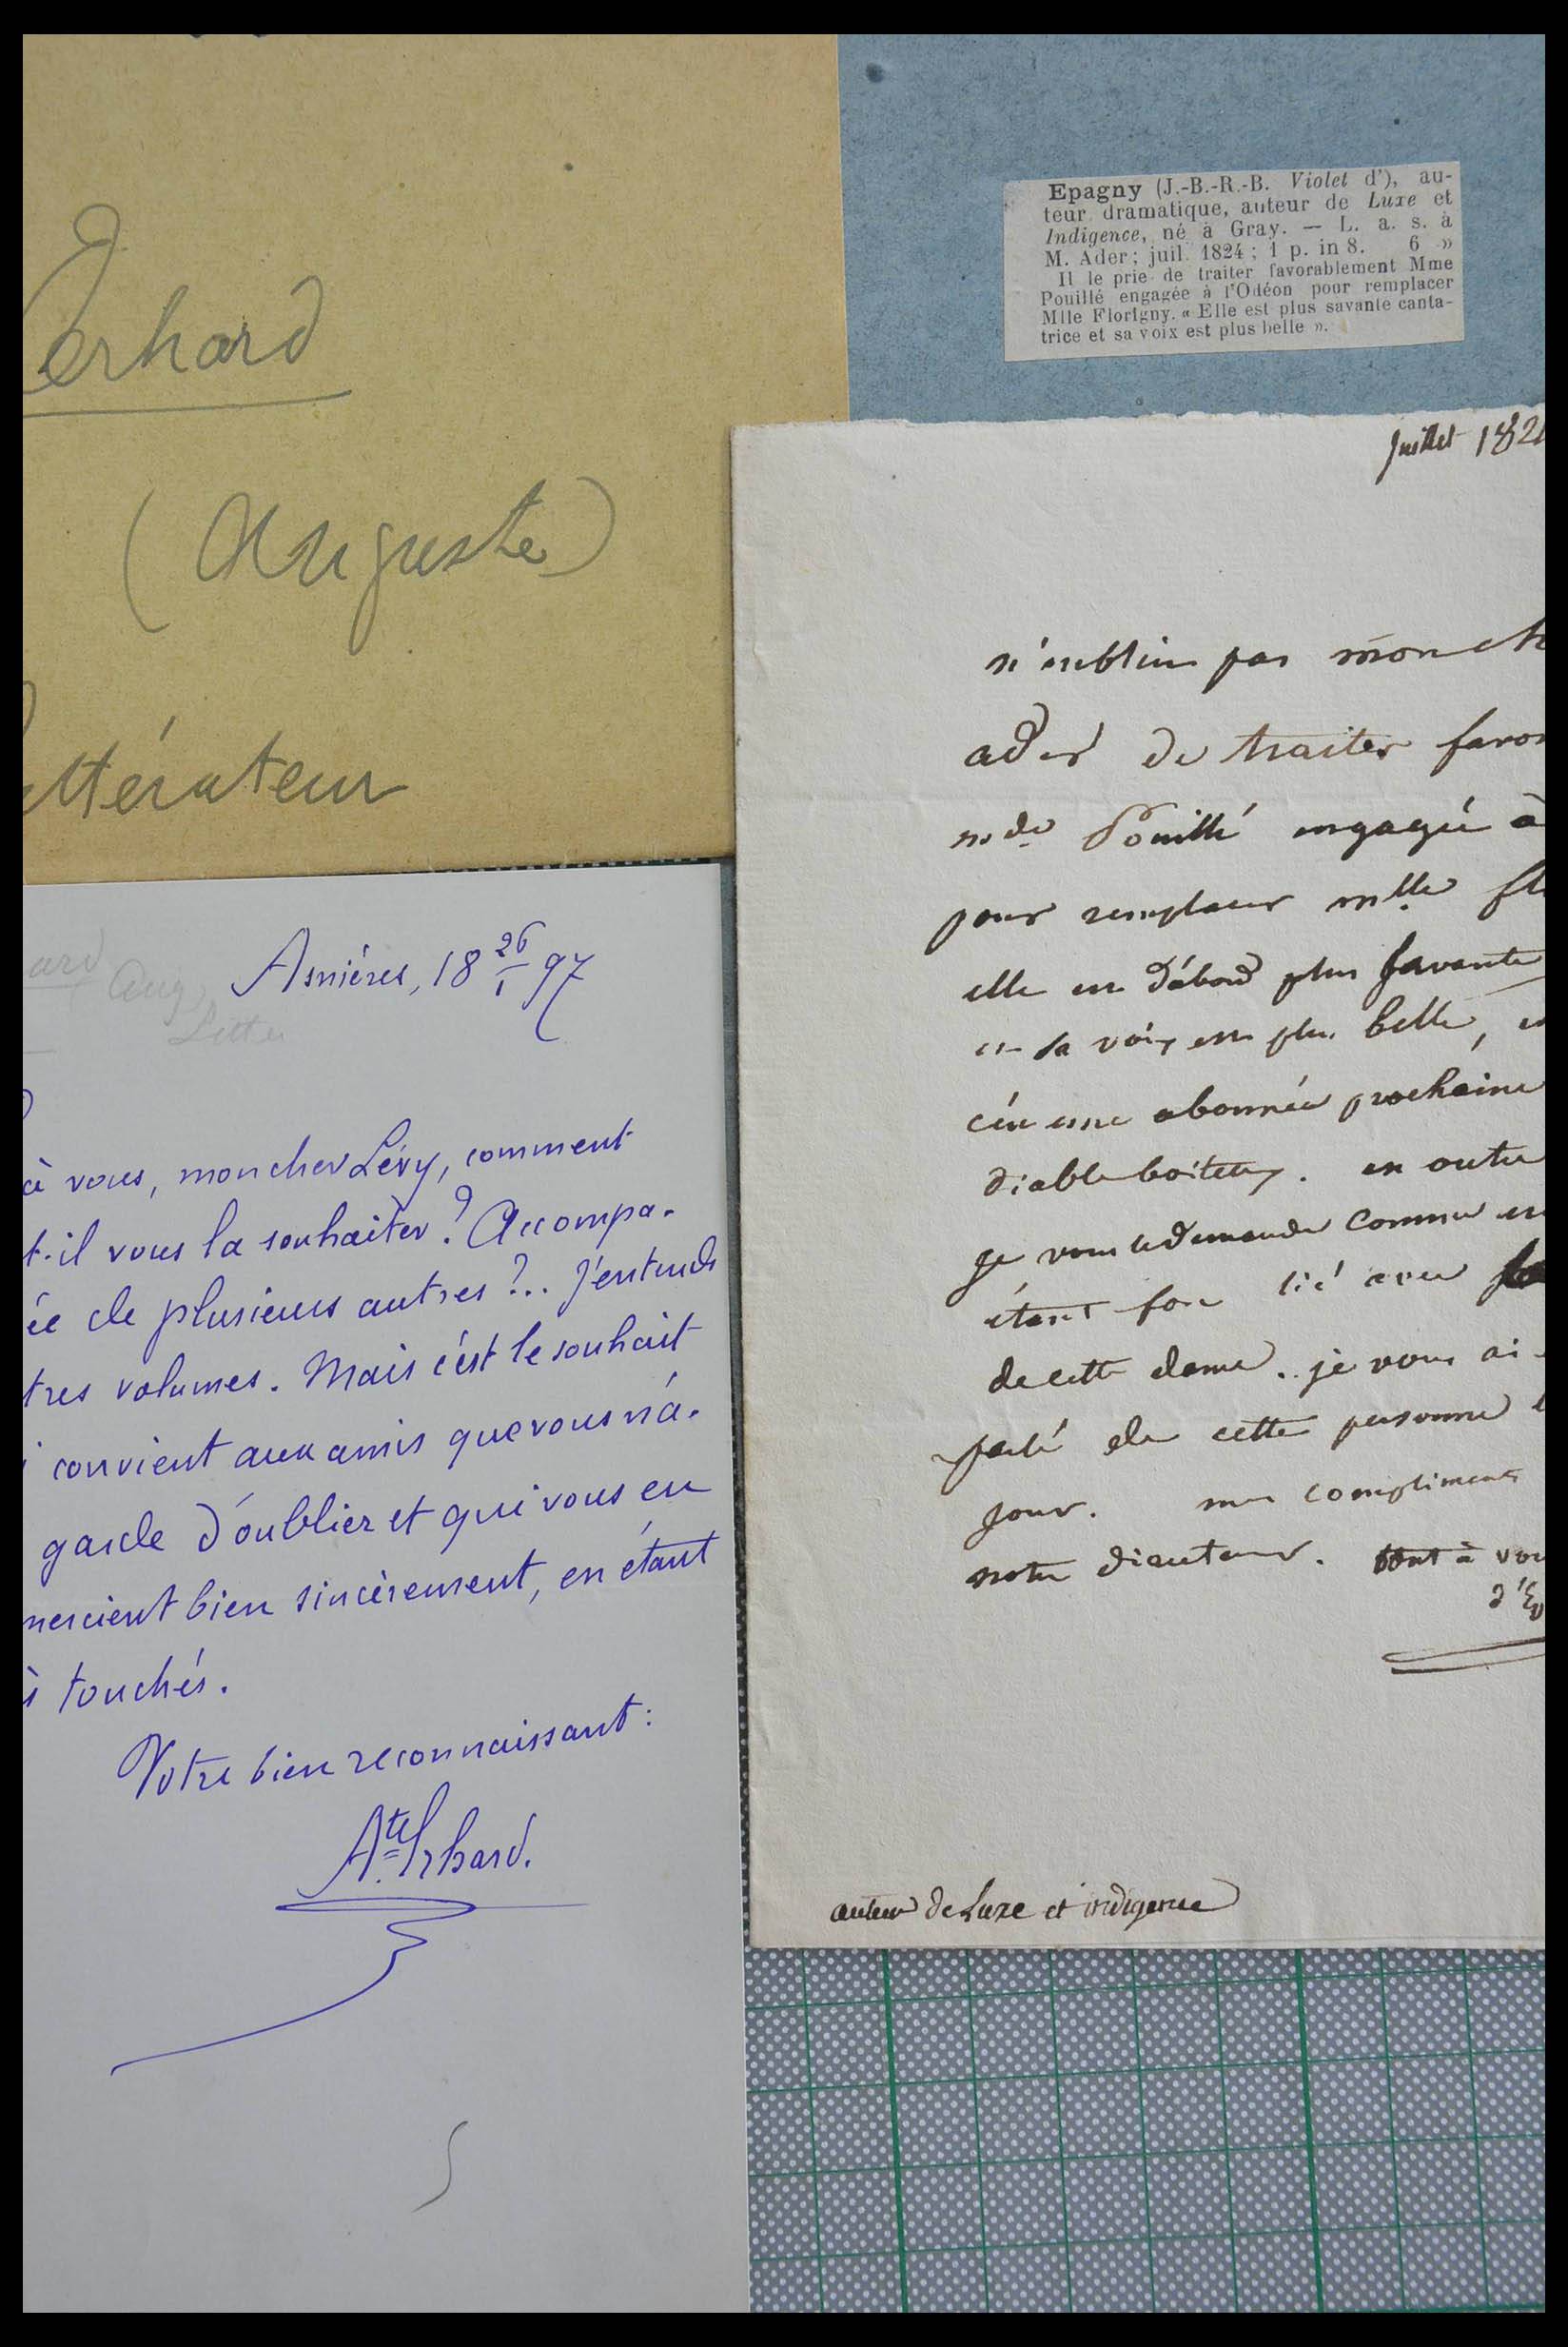 Erhard
(Auguste)
ttérateur
Epagny (J.-B.-R.-B. Violet d'), au-
teur dramatique, auteur de Luxe et
Indigence, né à Gray. — L. a. s. à
M. Ader; juil. 1824; 1 p. in 8. 6 »
Il le prie de traiter favorablement Mme
Pouillé engagée à l'Odéon pour remplacer
Mlle Florigny. « Elle est plus savante canta-
trice et sa voix est plus belle ».
ard Aug
Litter
Asnières, 18 26/1 97
à vous, mon cher Lévy, comment
t-il vous la souhaiter? Accompa-
ée de plusieurs autres?.. J'entends
tres volumes. Mais c'est le souhait
convient aux amis que vous n'a-
garde d'oublier et qui vous en
mercient bien sincèrement, en étant
s touchés.
Votre bien reconnaissant:
Ate Erhard.
Juillet 182
n'oubliez pas mon ch
ader de traiter favor
mde Pouillé engagée à
pour remplacer mlle flo
elle est d'abord plus savante
et sa voix est plus belle, et
c'est une abonnée prochaine
diable boiteux. en outre
je vous le demande comme un
étant fort lié avec
de cette dame. je vous ai
parlé de cette personne l
jour. mes compliments
notre directeur. tout à vou
d'Ep
auteur de Luxe et indigence